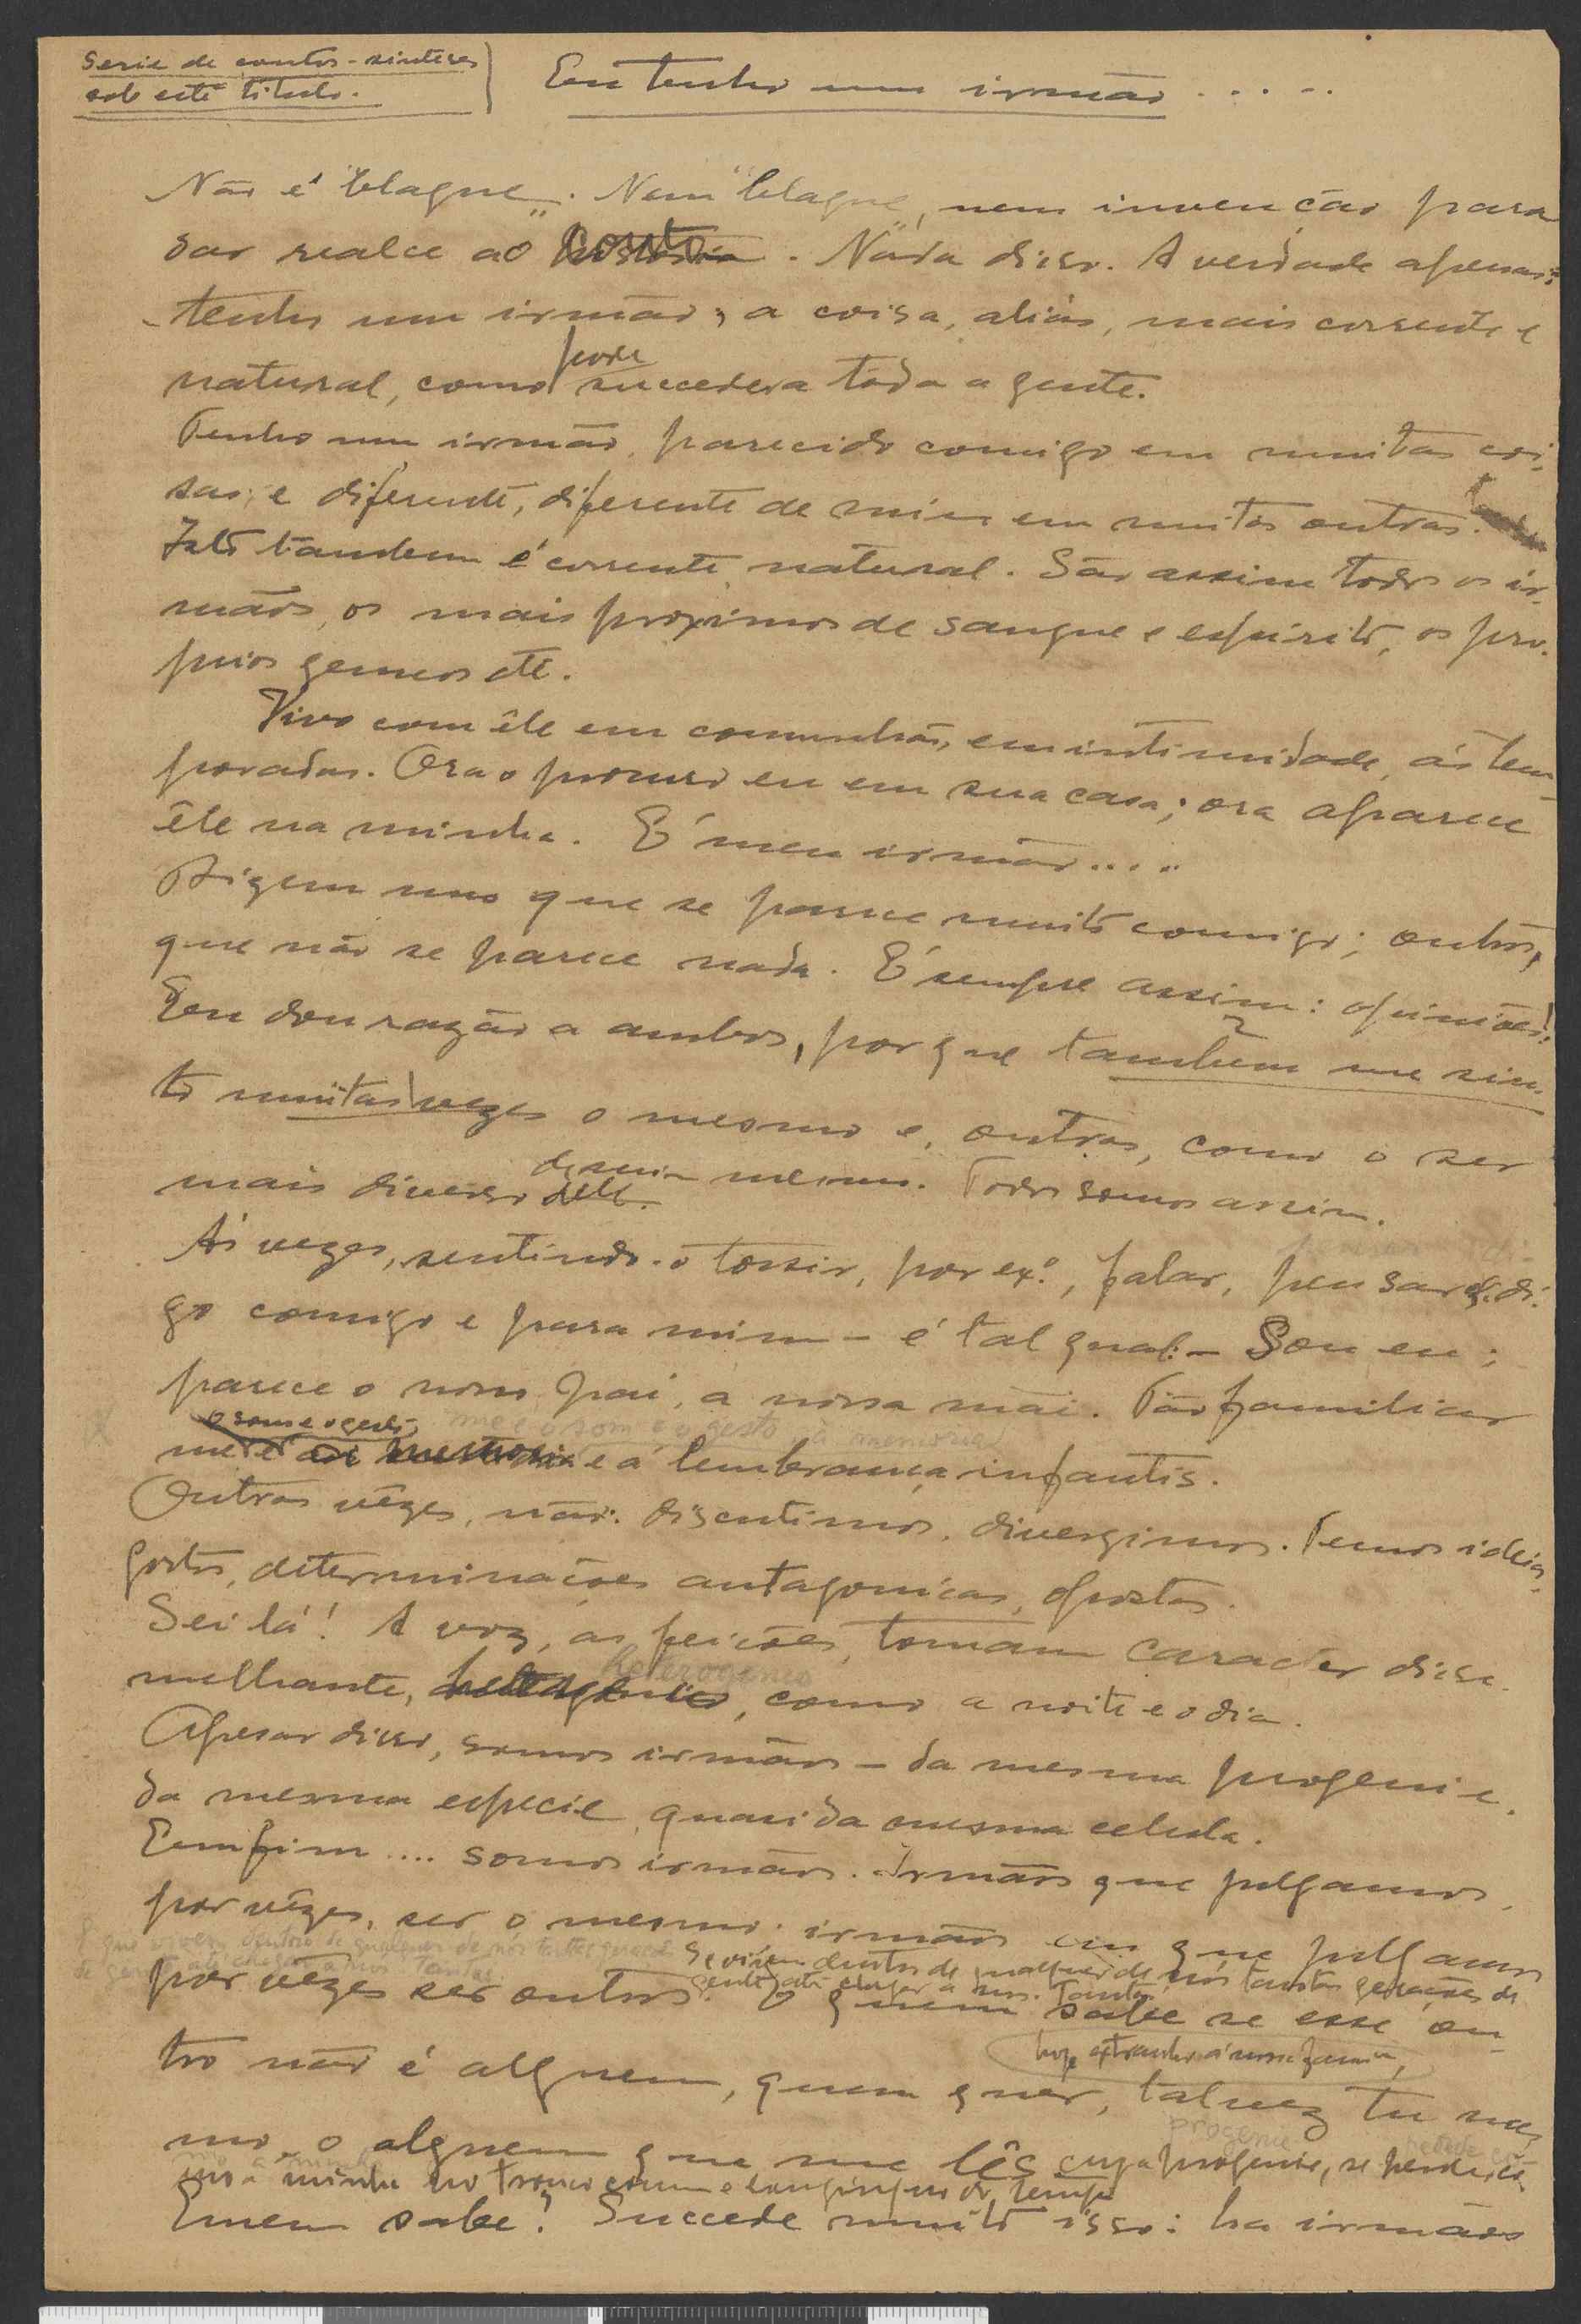 Serie de contos-sinteses
sob este titulo.
Eu tenho um irmão.....
Não é "blague". Nem "blague", nem invenção para
dar realce ao conto. Nada disso. A verdade apenas:
tenho um irmão; a coisa, aliás, mais corrente e
natural, como pode succeder a toda a gente.
Tenho um irmão, parecido comigo em muitas coi-
sas; e diferente, diferente de mim em muitas outras.
Isto tambem é corrente, natural. São assim todos os ir-
mãos, os mais proximos de sangue e espirito, os pro-
prios gemeos até.
Vivo com êle em comunhão, em intimidade, ás tem-
poradas. Ora o procuro eu em sua casa; ora aparece
êle na minha. É meu irmão....
Dizem uns que se parece muito comigo; outros,
que não se parece nada. É sempre assim: opiniões!
Eu dou razão a ambos, porque tambem me sin-
to muitas vezes o mesmo e, outras, como o ser
mais diverso de mim mesmo. Todos somos assim.
Ás vezes, sentindo-o tossir, por ex.º, falar, pensar, di-
go comigo e para mim - é tal qual: - Sou eu;
parece o nosso pai, a nossa mãi. Tão familiar
o som e o gesto, me é o som e o gesto a memoria
me é e a lembrança infantis.
Outras vêzes, não: discutimos, divergimos. Temos ideias,
gostos, determinações antagonicas, opostas.
Sei lá! A voz, as feições, tomam caracter disse-
heterogeneo
melhante, como a noite e o dia.
Apesar disso, somos irmãos - da mesma progenie,
da mesma especie, quasi da mesma celula.
Emfim.... somos irmãos. Irmãos que julgamos,
por vêzes, ser o mesmo; irmãos em que julgamos
Se vivem dentro de qualquer de nós tantas gerações de
gente até chegar a nós. Tantas
por vêzes ser outros. E quem sabe se esse ou-
hoje extranho á nossa familia,
tro não é alguem, quem quer, talvez tu mes-
progenie
mo, o alguem que me lês cuja progenie, se perde co-
mo a minha no tronco comum e longinquo do tempo
Quem sabe! Succede muito isso: ha irmãos